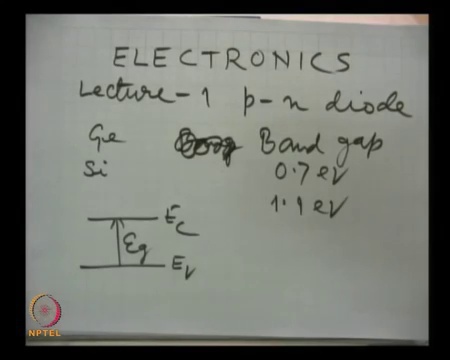 ELECTRONICS
Lecture - 1 p-n diode
Ge Band gap
Si 0.7 eV
1.1 eV
Ec
Eg
Ev
NPTEL